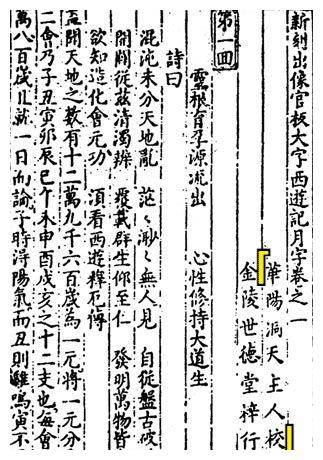 新刻出像官板大字西遊記月字卷之一
華陽洞天主人校
金陵世德堂梓行
第一回
靈根育孕源流出 心性修持大道生
詩曰
混沌未分天地亂 茫〻渺〻無人見 自從盤古破
開闢從茲清濁辨 覆載群生仰至仁 發明萬物皆
欲知造化會元功 須看西遊釋厄傳
盖聞天地之數有十二萬九千六百歲為一元將一元分
二會乃子丑寅卯辰巳午未申酉戌亥之十二支也每會
萬八百歲且就一日而論子時得陽氣而丑則雞鳴寅不